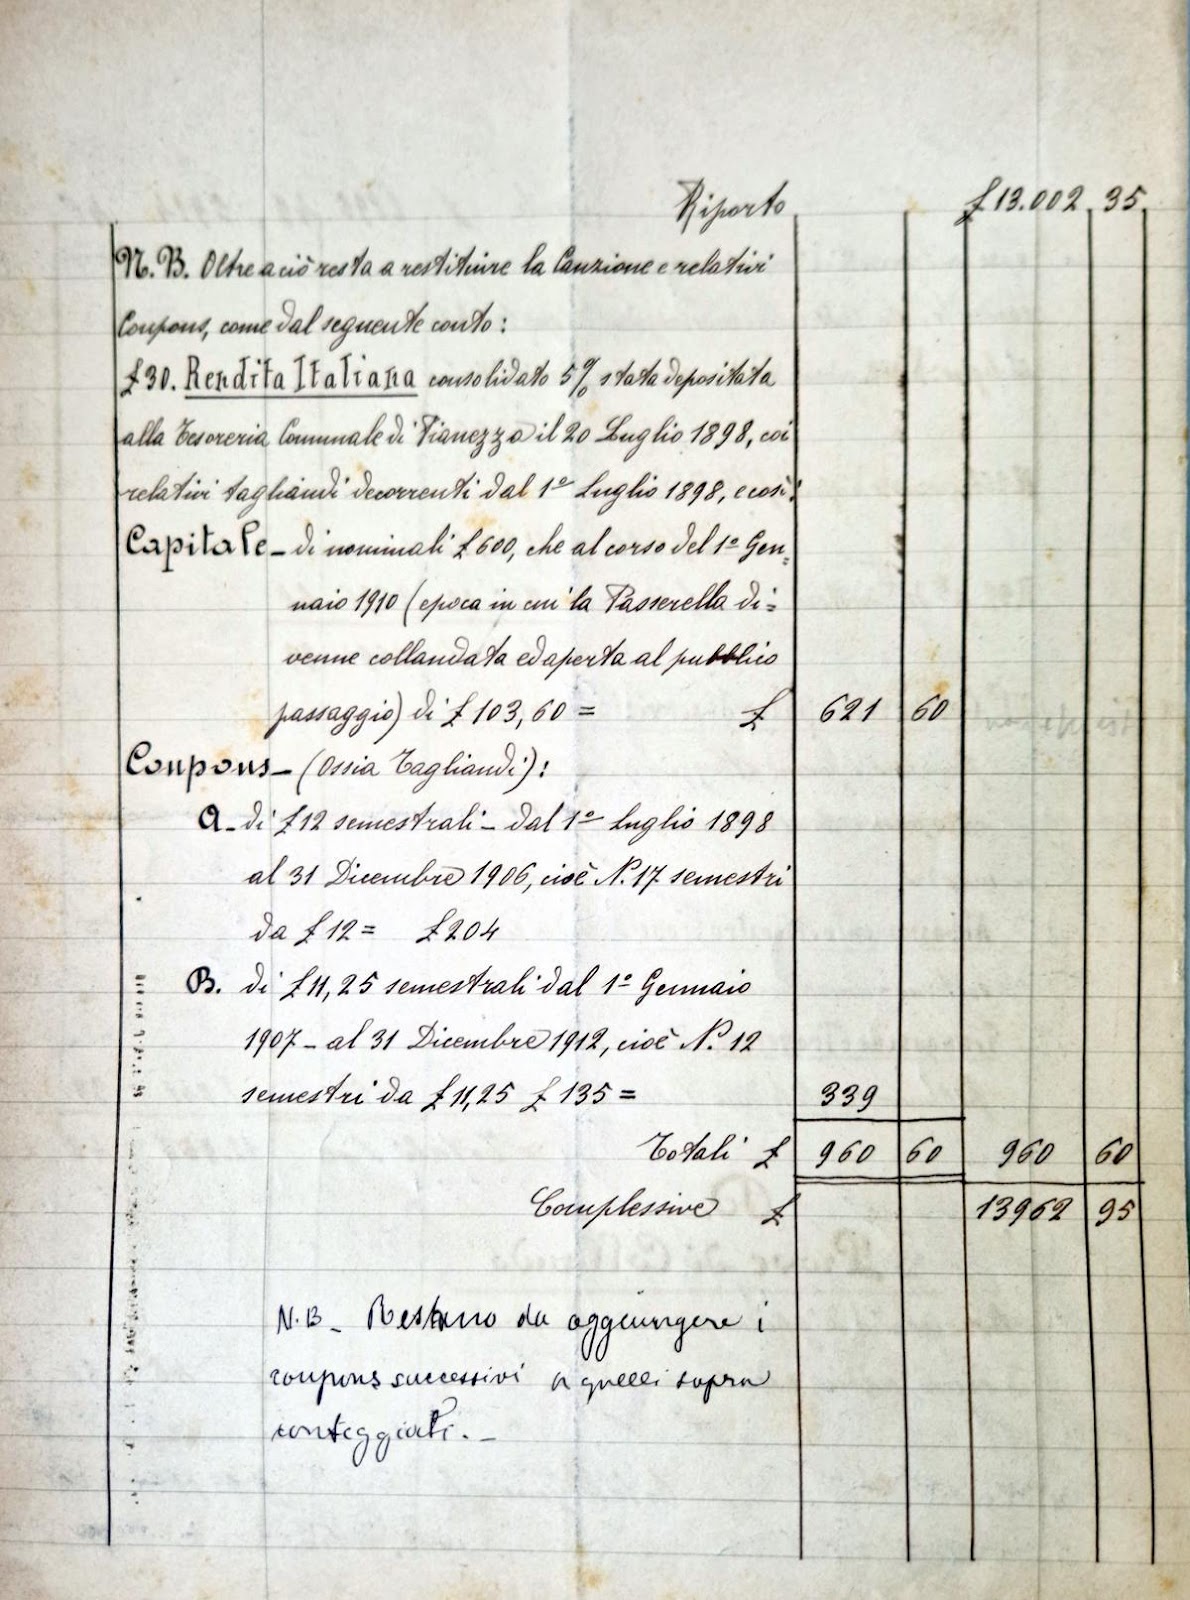 Riporto £ 13.002 35
N. B. Oltre a ciò resta a restituire la Cauzione e relativi
Coupons, come dal seguente conto:
£ 30. Rendita Italiana consolidato 5% stata depositata
alla Tesoreria Comunale di Pianezza il 20 Luglio 1898, coi
relativi tagliandi decorrenti dal 1º Luglio 1898, e così:
Capitale - di nominali £ 600, che al corso del 1º Gen=
naio 1910 (epoca in cui la Passerella di=
venne collaudata ed aperta al pubblico
passaggio) di £ 103,60 = £ 621 60
Coupons - (Ossia Tagliandi):
A - di £ 12 semestrali - dal 1º Luglio 1898
al 31 Dicembre 1906, cioè N. 17 semestri
da £ 12 = £ 204
B. di £ 11,25 semestrali dal 1º Gennaio
1907 - al 31 Dicembre 1912, cioè N. 12
semestri da £ 11,25 £ 135 = 339
Totali £ 960 60 960 60
Complessive £ 13962 95
N.B - Restano da aggiungere i
coupons successivi a quelli sopra
conteggiati. -